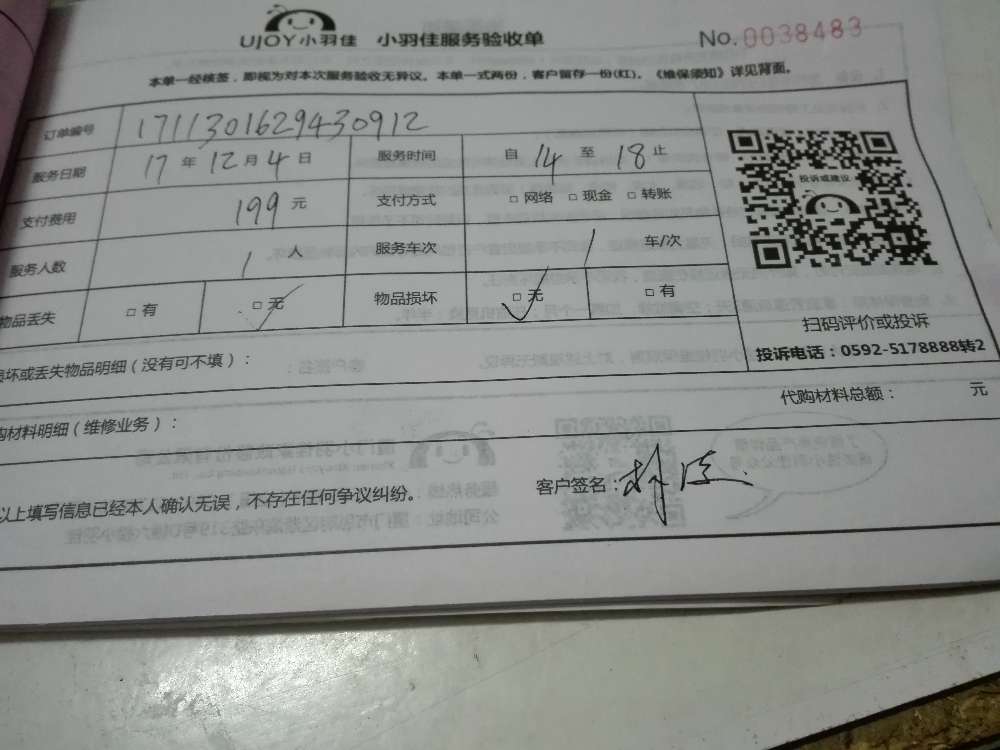 UJOY小羽佳 小羽佳服务验收单 No.0038483
本单一经核签，即视为对本次服务验收无异议。本单一式两份，客户留存一份(红)。《维保须知》详见背面。
订单编号 1711301629430912
服务日期 17年12月4日 服务时间 自14至18止
支付费用 199元 支付方式 □网络 □现金 □转账
服务人数 1人 服务车次 1车/次
物品丢失 □有 □无 物品损坏 □无 □有
投诉或建议
扫码评价或投诉
投诉电话：0592-5178888转2
损坏或丢失物品明细（没有可不填）：
购材料明细（维修业务）： 代购材料总额： 元
以上填写信息已经本人确认无误，不存在任何争议纠纷。 客户签名：